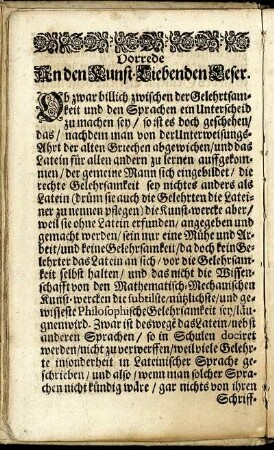 Vorrede
An den Kunst-Liebenden Leser.
Ob zwar billich zwischen der Gelehrtsam-
keit und den Sprachen ein Unterscheid
zu machen sey / so ist es doch geschehen/
das / nachdem man von der Unterweisungs-
Ahrt der alten Griechen abgewichen / und das
Latein für allen andern zu lernen auffgekom-
men / der gemeine Mann sich eingebildet / die
rechte Gelehrsamkeit sey nichtes anders als
Latein (drüm sie auch die Gelehrten die Latei-
ner zu nennen pflegen) die Kunst-wercke aber/
weil sie ohne Latein erfunden / angegeben und
gemacht werden / sein nur eine Mühe und Ar-
beit / und keine Gelehrsamkeit / da doch kein Ge-
lehrter das Latein an sich / vor die Gelehrsam-
keit selbst halten / und das nicht die Wissen-
schafft von den Mathematisch-Mechanischen
Kunst-wercken die subtilste / nützlichste / und ge-
wisseste Philosophische Gelehrsamkeit sey / läu-
gnen wird. Zwar ist deswegē das Latein / nebst
anderen Sprachen / so in Schulen dociret
werden / nicht zu verwerffen / weil viele Gelehr-
te insonderheit in Lateinischer Sprache ge-
schrieben / und also / wenn man solcher Spra-
chen nicht kündig wäre / gar nichts von ihren
Schriff-